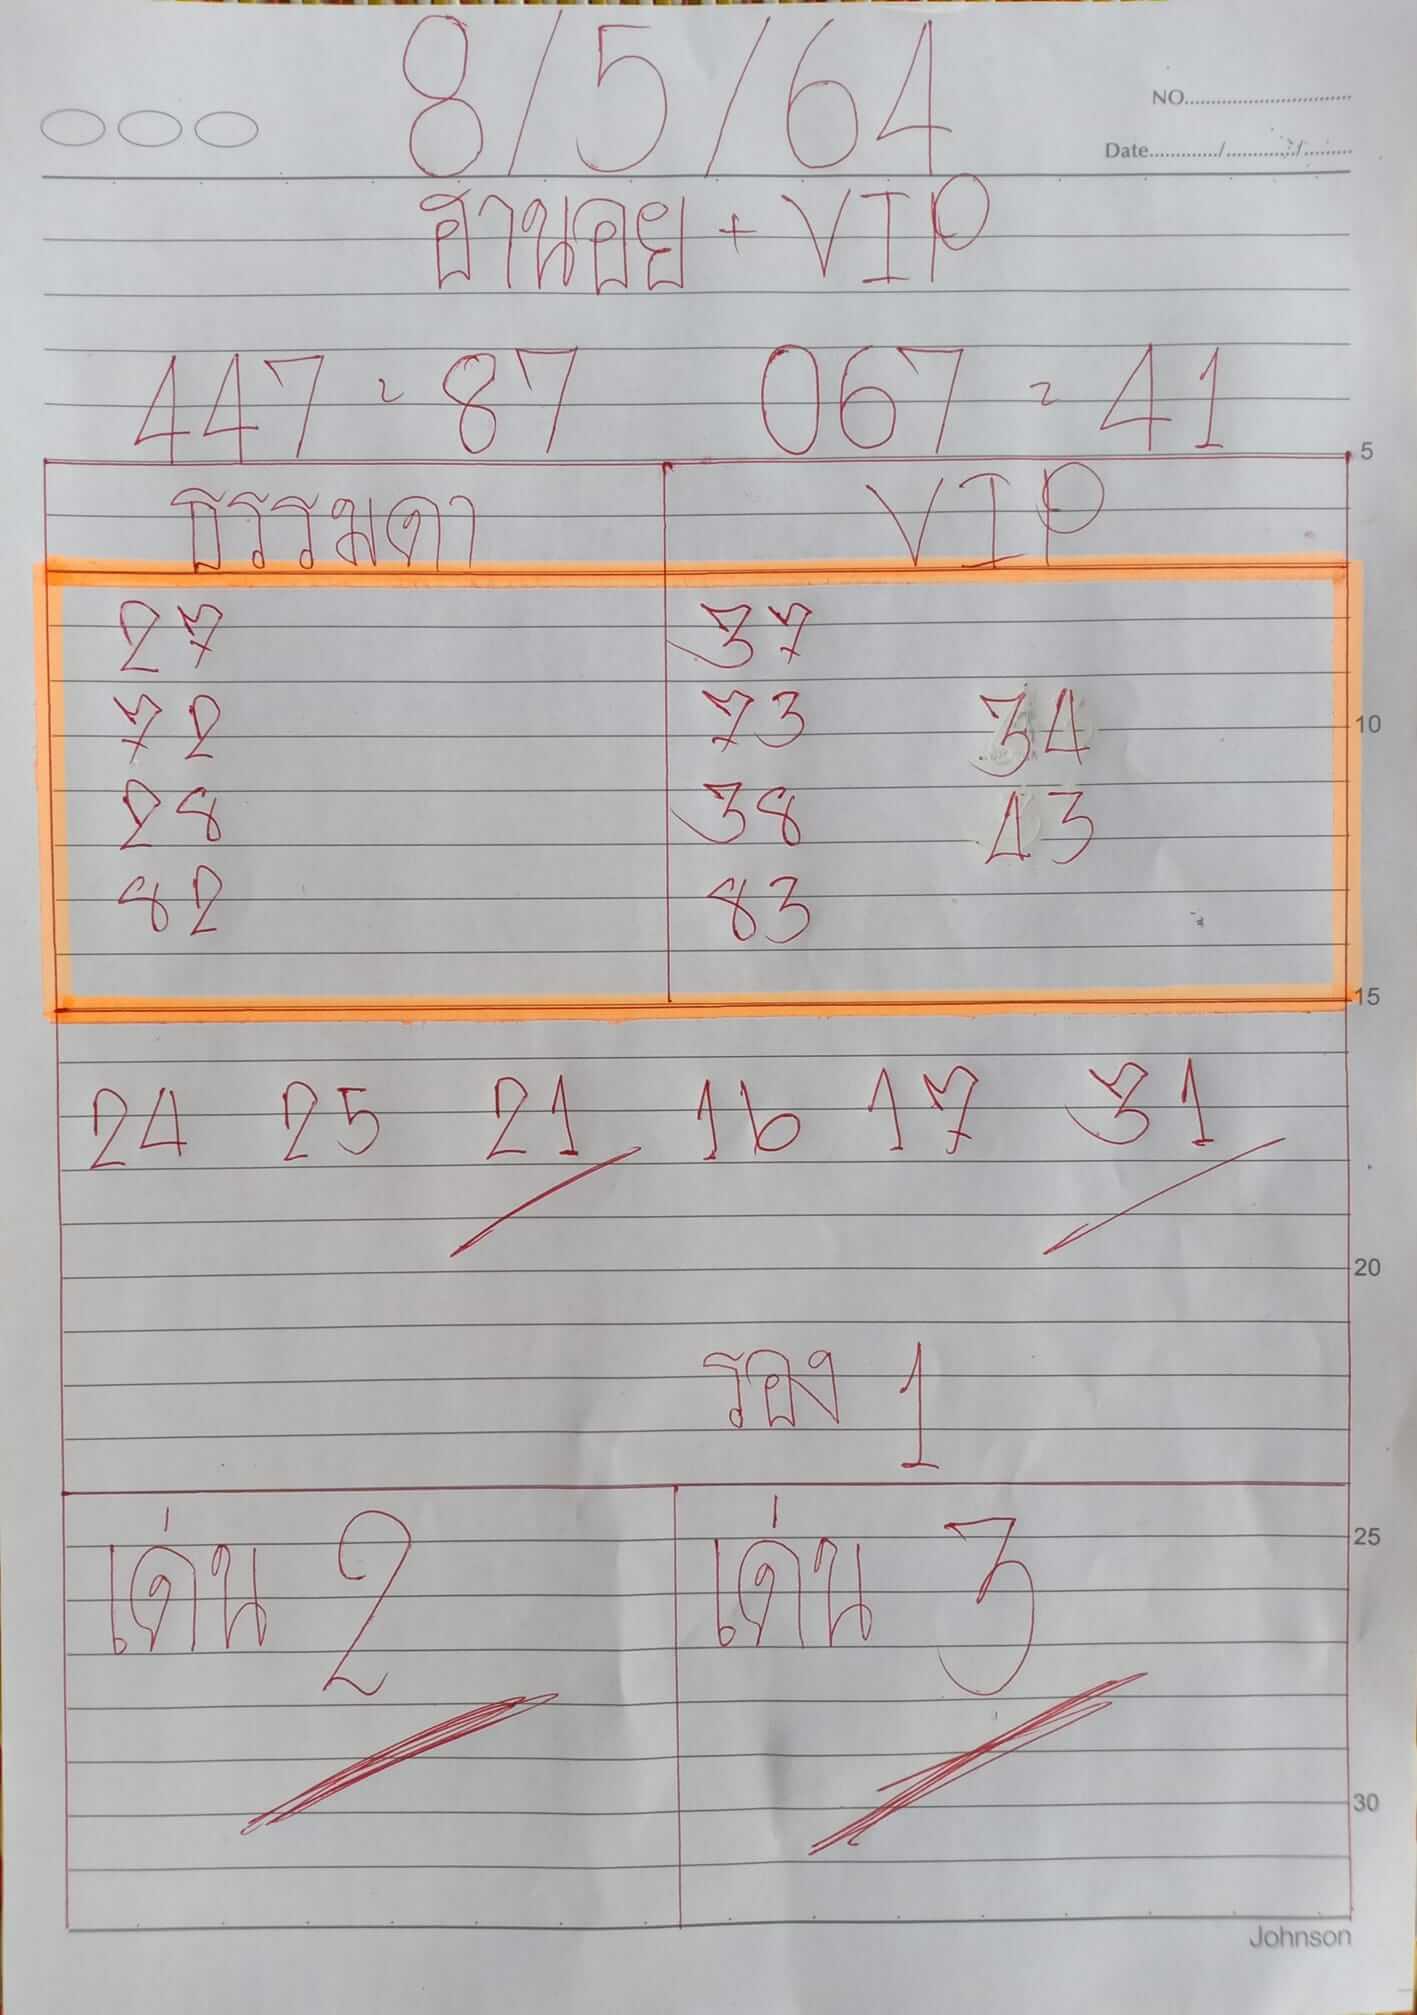 8/5/64
NO.
Date / /
ฮานอย + VIP
447 - 87 067 - 41
5
ธรรมดา VIP
27 37
72 73 34
10
28 38 43
82 83
15
24 25 21 16 17 31
20
รอง 1
เด่น 2 เด่น 3
25
30
Johnson